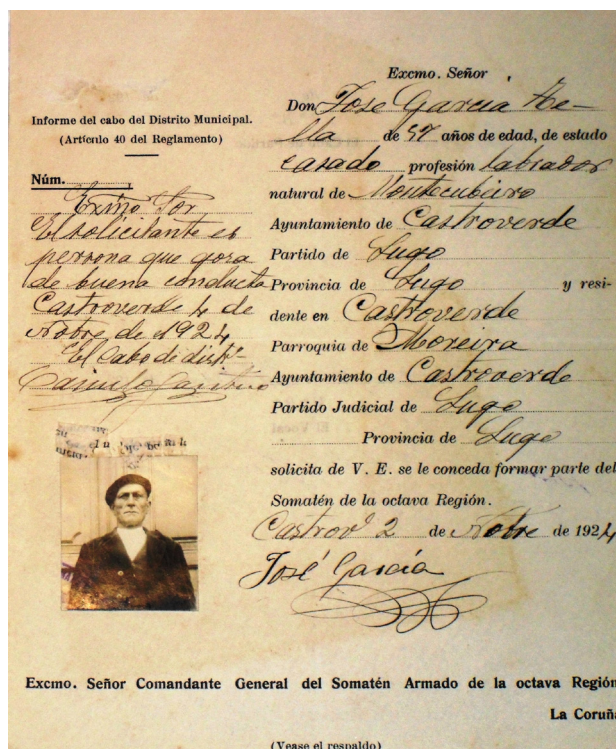 Informe del cabo del Distrito Municipal.
(Artículo 40 del Reglamento)
Núm.
Exmo Sor
El solicitante es
persona que goza
de buena conducta
Castroverde 4 de
Nobre de 1924
El Cabo de distº
Excmo. Señor
Don Jose Garcia
de 57 años de edad, de estado
casado profesión labrador
natural de Montecubeiro
Ayuntamiento de Castroverde
Partido de Lugo
Provincia de Lugo y resi-
dente en Castroverde
Parroquia de Moreira
Ayuntamiento de Castroverde
Partido Judicial de Lugo
Provincia de Lugo
solicita de V. E. se le conceda formar parte del
Somatén de la octava Región.
Castrovº 2 de Nobre de 1924
José García
Excmo. Señor Comandante General del Somatén Armado de la octava Región
La Coruña
(Vease el respaldo)